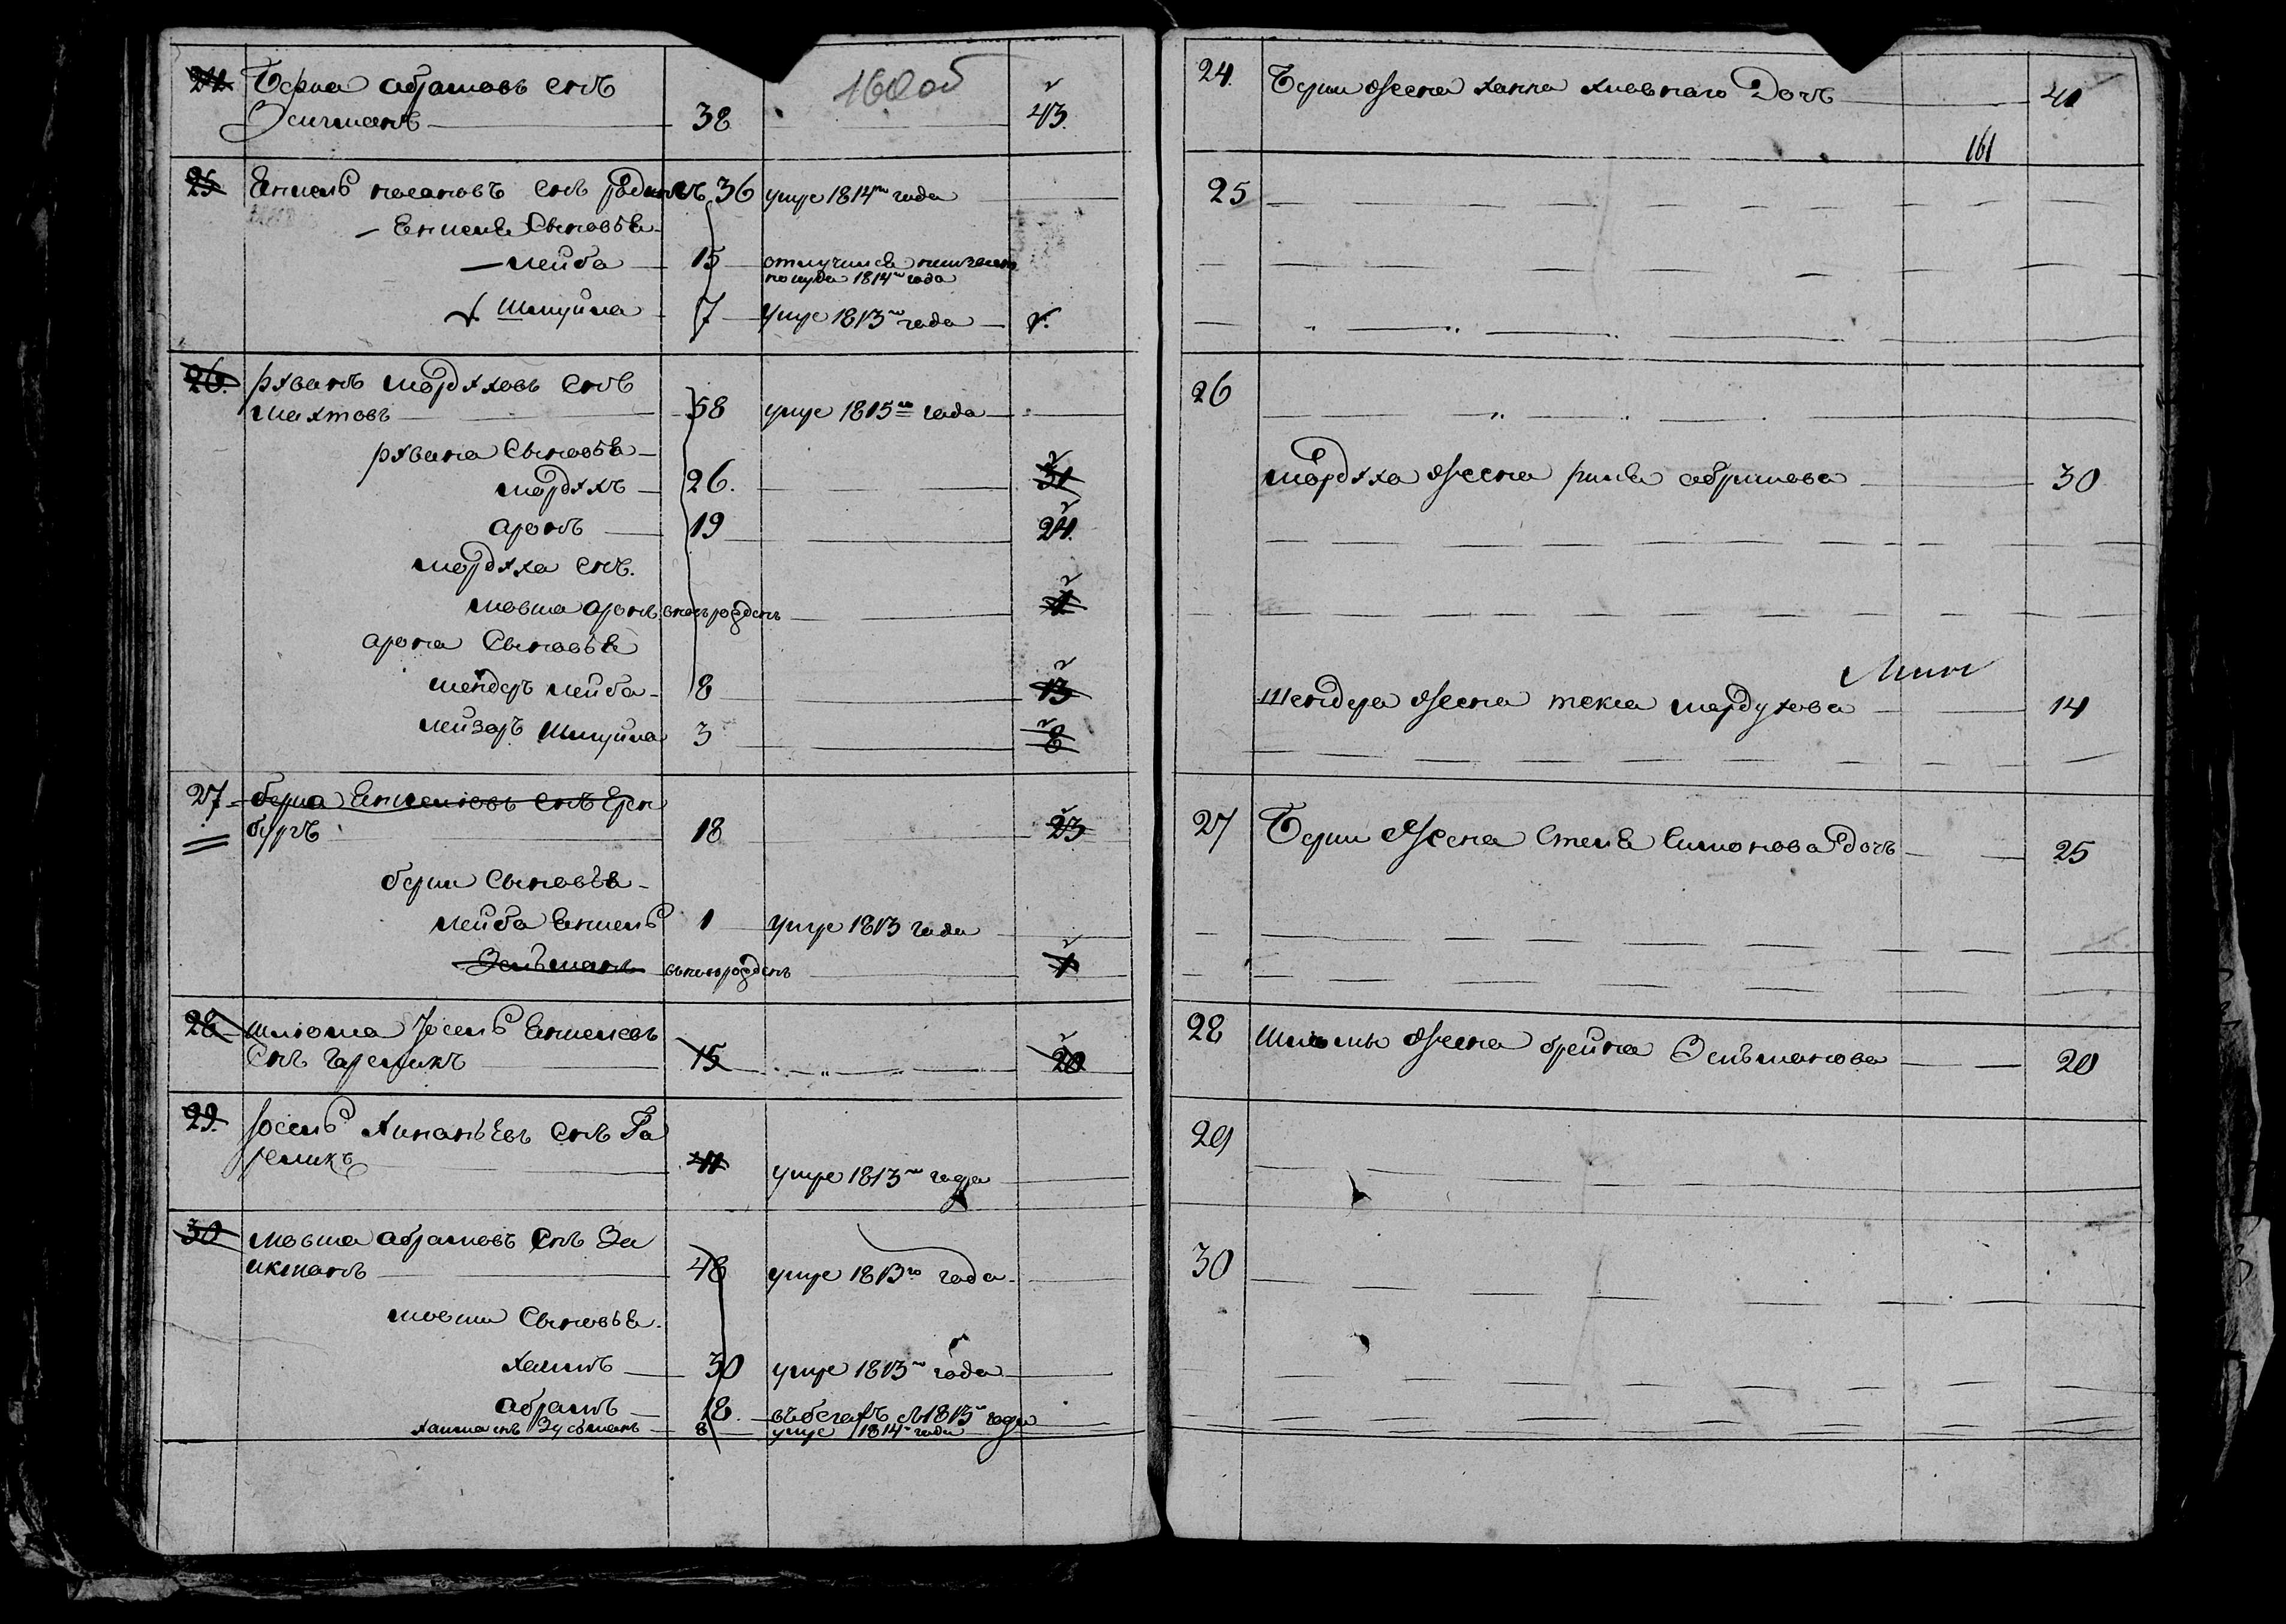 160 об
24 Берка абрамовъ снъ
Зильманъ 38 43.
25 Енкель носановъ снъ 36 умре 1814го года
Енкеля Сыновья
лейба 15 отлучился
1814го года
Шмуйла 7 умре 1813го года
26. рувинъ мордуховъ снъ
махтовъ 58 умре 1815го года
рувина Сыновья
мордухъ 26. 31
аронъ 19 24.
мордуха снъ.
мовша аронъ вновь рожденъ
арона Сыновья
мендеръ лейба 8 13
лейзоръ Шмуйла 3 8
27 берка Енкелювъ снъ Ерен
бургъ 18 23
берки Сыновья
лейба Енкель 1 умре 1813 года
Зельманъ вновь рожденъ 1
28 шлюома Іосель Енкелевъ
Снъ гареликъ 15 20
29. Іосель Хинаньевъ снъ Га
реликъ умре 1813го года
30 мовша абрамовъ снъ За
икманъ 48 умре 1813го года
мовши Сыновья.
хаимъ 30 умре 1813го года
абрамъ 18. въ бегахъ съ 1813го года
хаима снъ Зусьманъ 8 умре 1814го года
24. Берки жена ханна Дочь 40
161
25
26
мордуха жена рися абрамова 30
Мин
Мендера жена текла мордухова 14
27 Берки жена Стеля Симонова дочь 25
28 Шлюмы жена брейна Зельманова 20
29
30